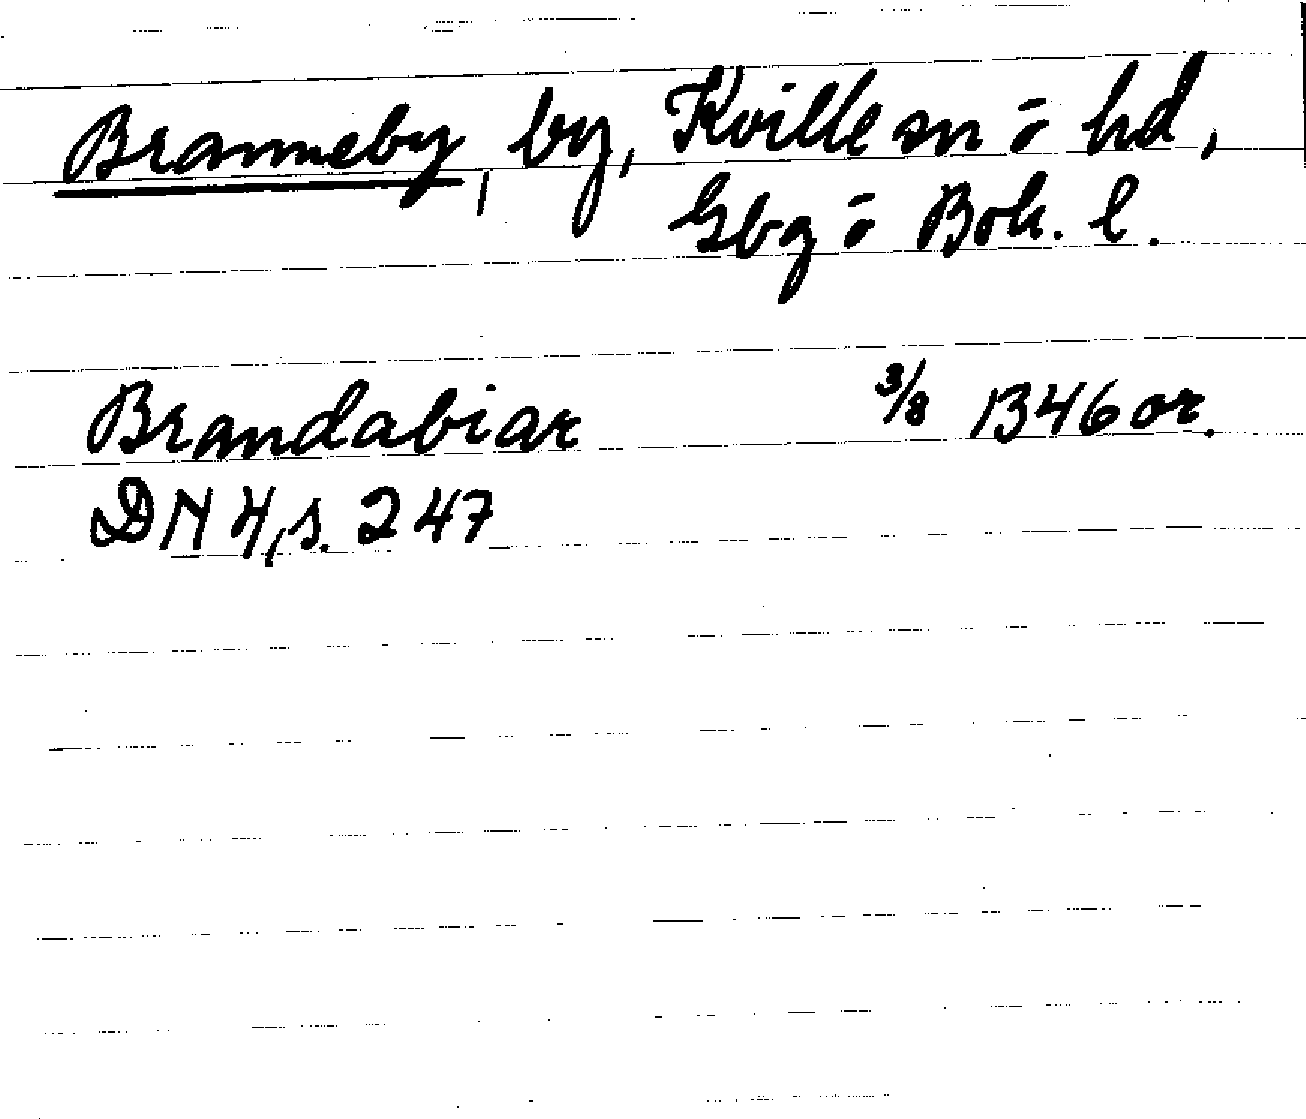 Branneby, by, Kville sn ō hd,
Gbg ō Boh. l.
Brandabiar 3/8 1346 or.
DN 4, s. 247